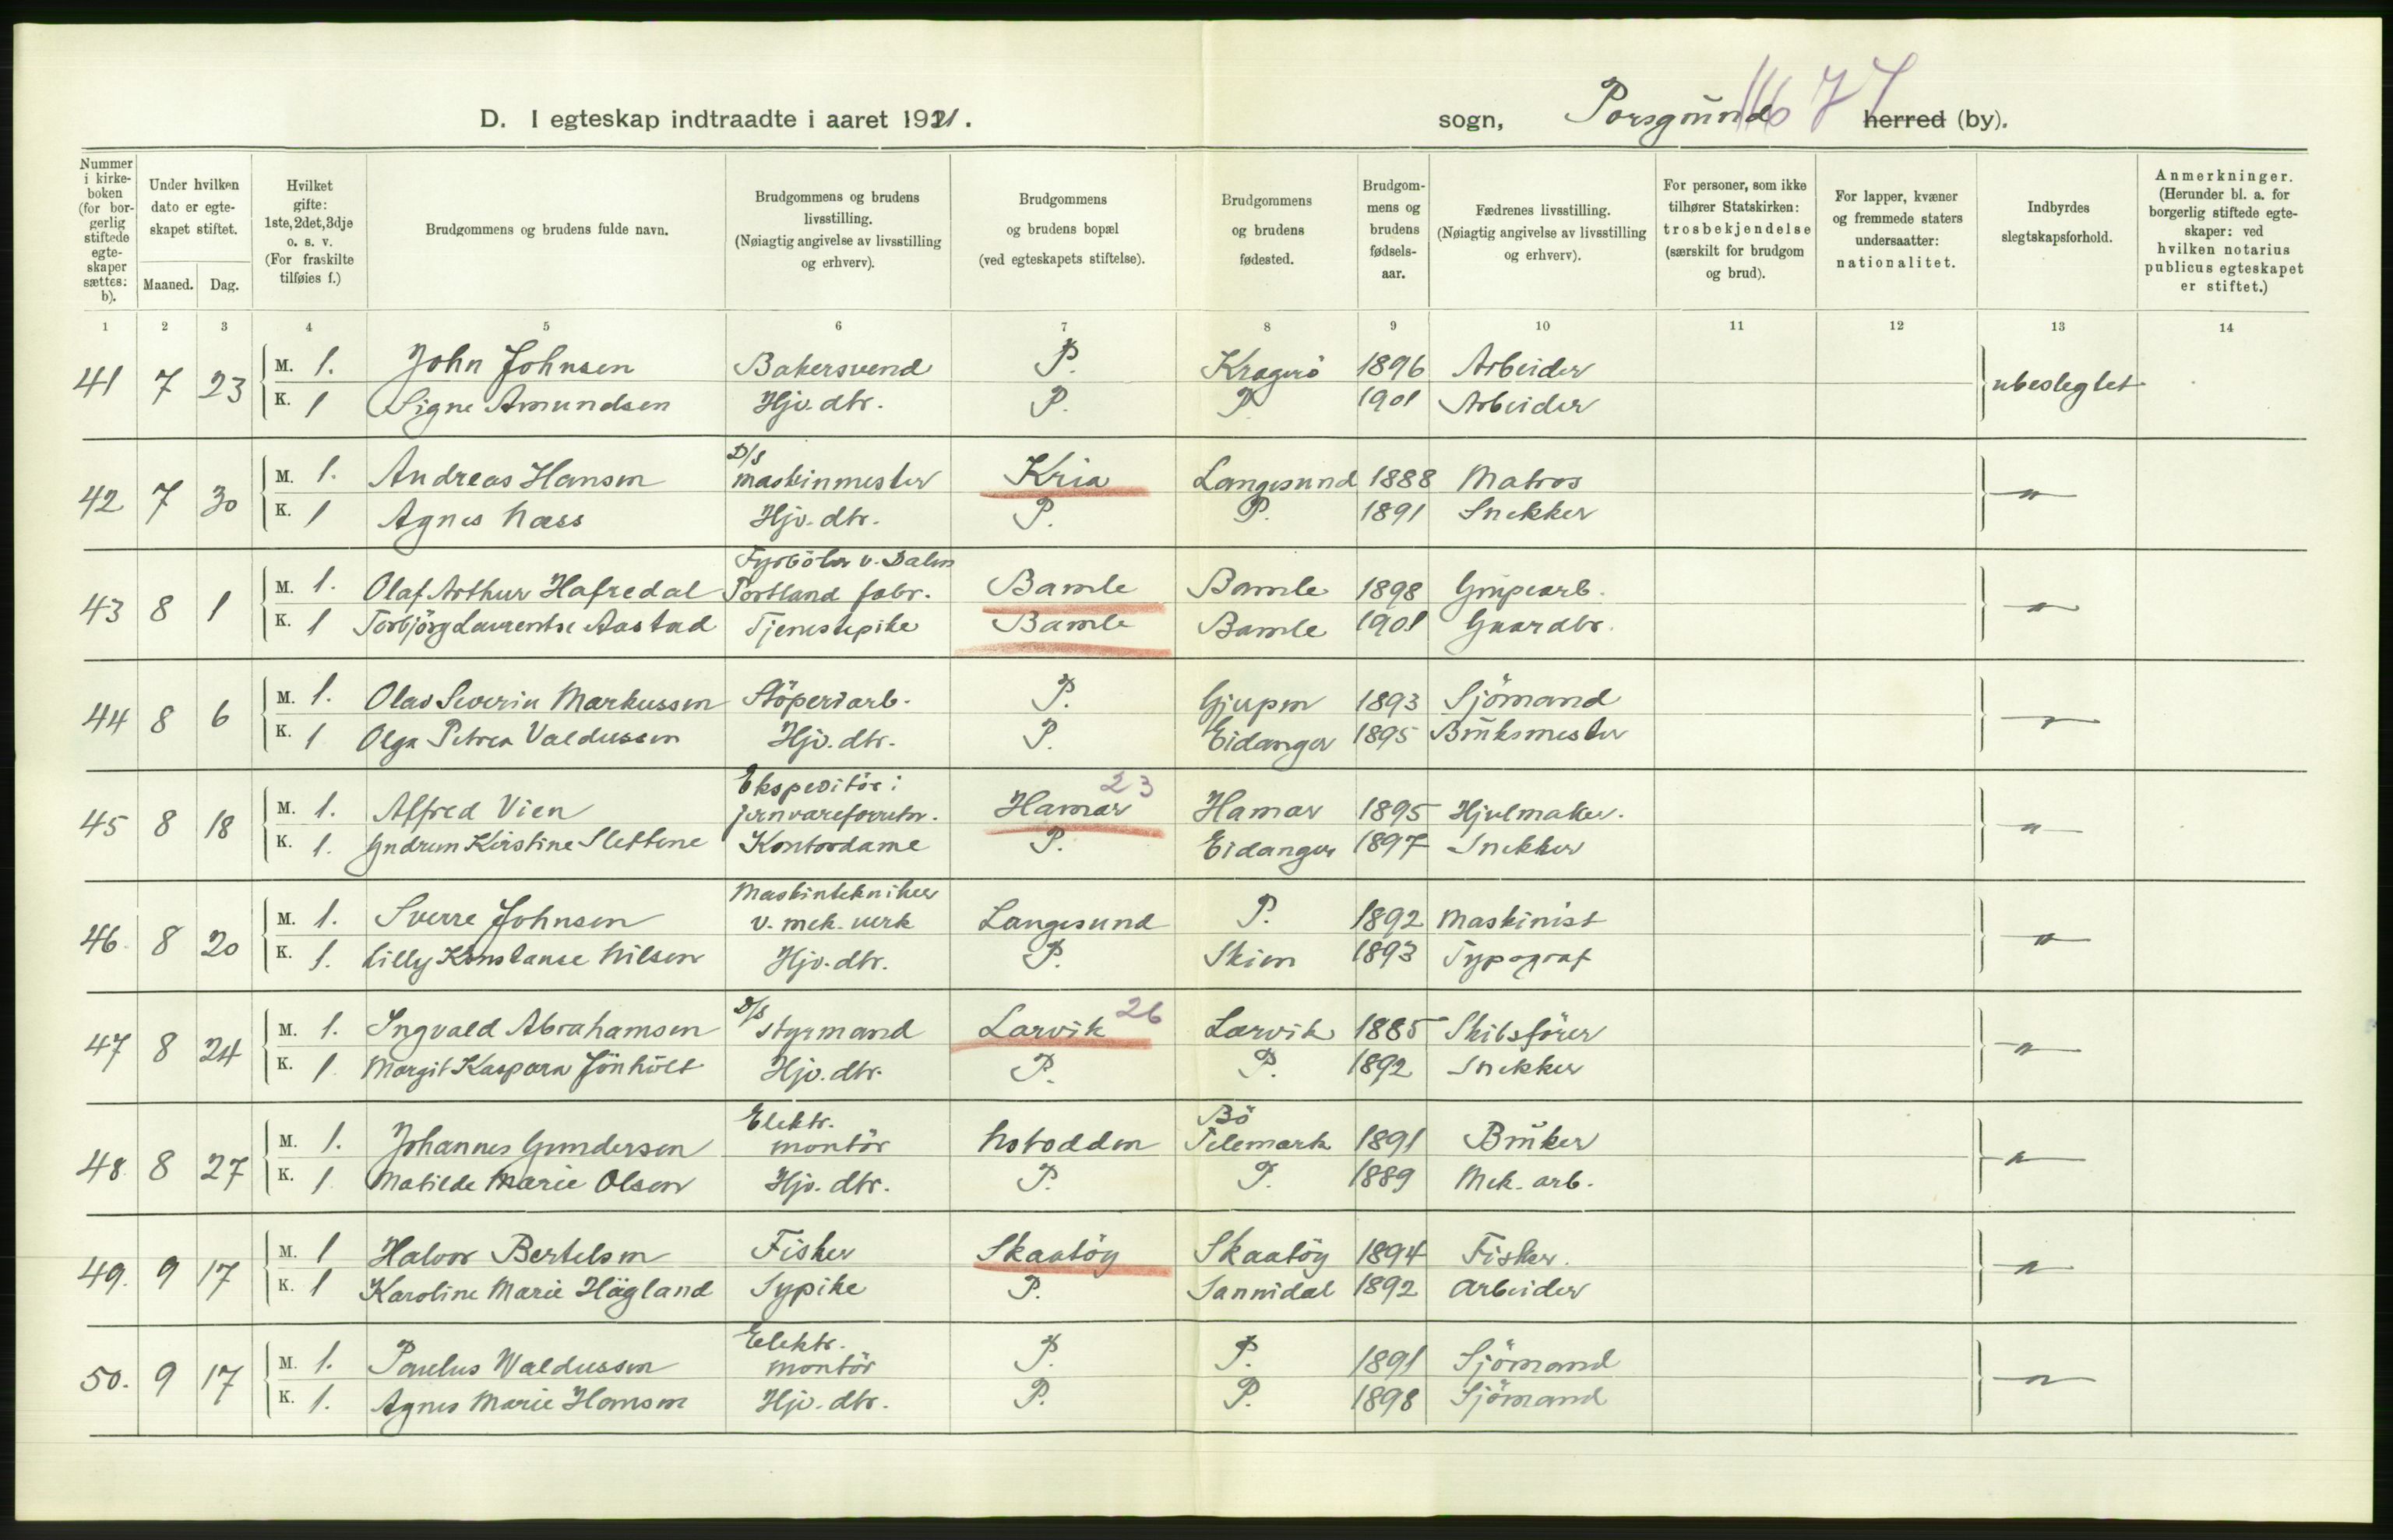 D. I egteskap indtraadte i aaret 1921. sogn, Porsgrund herred (by).
1167 7
Nummer i kirkeboken (for borgerlig stiftede egteskaper sættes: b).
Under hvilken dato er egteskapet stiftet.
Maaned. Dag.
Hvilket gifte: 1ste, 2det, 3dje o. s. v. (For fraskilte tilføies f.)
Brudgommens og brudens fulde navn.
Brudgommens og brudens livsstilling. (Nøiagtig angivelse av livsstilling og erhverv).
Brudgommens og brudens bopæl (ved egteskapets stiftelse).
Brudgommens og brudens fødested.
Brudgommens og brudens fødselsaar.
Fædrenes livsstilling. (Nøiagtig angivelse av livsstilling og erhverv).
For personer, som ikke tilhører Statskirken: trosbekjendelse (særskilt for brudgom og brud).
For lapper, kvæner og fremmede staters undersaatter: nationalitet.
Indbyrdes slegtskapsforhold.
Anmerkninger. (Herunder bl. a. for borgerlig stiftede egteskaper: ved hvilken notarius publicus egteskapet er stiftet.)
1 2 3 4 5 6 7 8 9 10 11 12 13 14
41 7 23 M. 1. John Johnsen Bakersvend P. Kragerö 1896 Arbeider ubeslegtet
K. 1 Signe Amundsen Hjv. dtr. P. P. 1901 Arbeider
42 7 30 M. 1. Andreas Hansen D/S maskinmester Kria Langesund 1888 Matros "
K. 1 Agnes Næss Hjv. dtr. P. P. 1891 Snekker
43 8 1 M. 1. Olaf Arthur Hafredal Fyrböter v. Dalen Portland fabr. Bamle Bamle 1898 Grupearb. "
K. 1 Torbjörg Laurentse Aastad Tjenestepike Bamle Bamle 1901 Gaardbr.
44 8 6 M. 1. Olav Severin Markussen Stöperiarb. P. Gjerpen 1893 Sjömand "
K. 1 Olga Petrea Valdussen Hjv. dtr. P. Eidanger 1895 Bruksmester
45 8 18 M. 1. Alfred Vien Ekspeditör i jernvareforretn. Hamar 23 Hamar 1895 Hjulmaker. "
K. 1. Gudrun Kirstine Slettene Kontordame P. Eidanger 1897 Snekker
46. 8 20 M. 1. Sverre Johnsen Maskintekniker v. mek. verk Langesund P. 1892 Maskinist "
K. 1. Lilly Konstanse Nilsen Hjv. dtr. P. Skien 1893 Typograf
47 8 24 M. 1. Ingvald Abrahamsen D/S styrmand Larvik 26 Larvik 1885 Skibsförer "
K. 1 Margit Kaspara Jönholt Hjv. dtr. P. P. 1892 Snekker
48. 8 27 M. 1. Johannes Gundersen Elektr. montör Notodden Bö Telemark 1891 Bruker "
K. 1 Matilde Marie Olsen Hjv. dtr. P. P. 1889 Mek. arb.
49. 9 17 M. 1 Halvor Bertelsen Fisker Skaatöy Skaatöy 1894 Fisker. "
K. 1 Karoline Marie Hägland Sypike P. Sannidal 1892 Arbeider
50. 9 17 M. 1. Paulus Waldussen Elektr. montör P. P. 1891 Sjömand "
K. 1. Agnes Marie Hansen Hjv. dtr. P. P. 1898 Sjömand